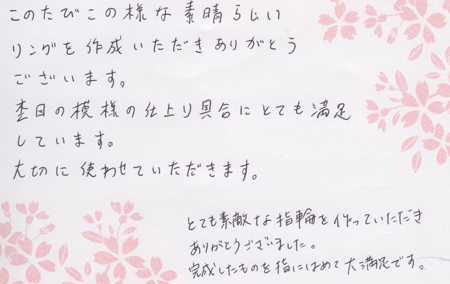 このたびこの様な素晴らしい
リングを作成いただきありがとう
ございます。
杢目の模様の仕上り具合にとても満足
しています。
大切に使わせていただきます。
とても素敵な指輪を作っていただき
ありがとうございました。
完成したものを指にはめて大満足です。